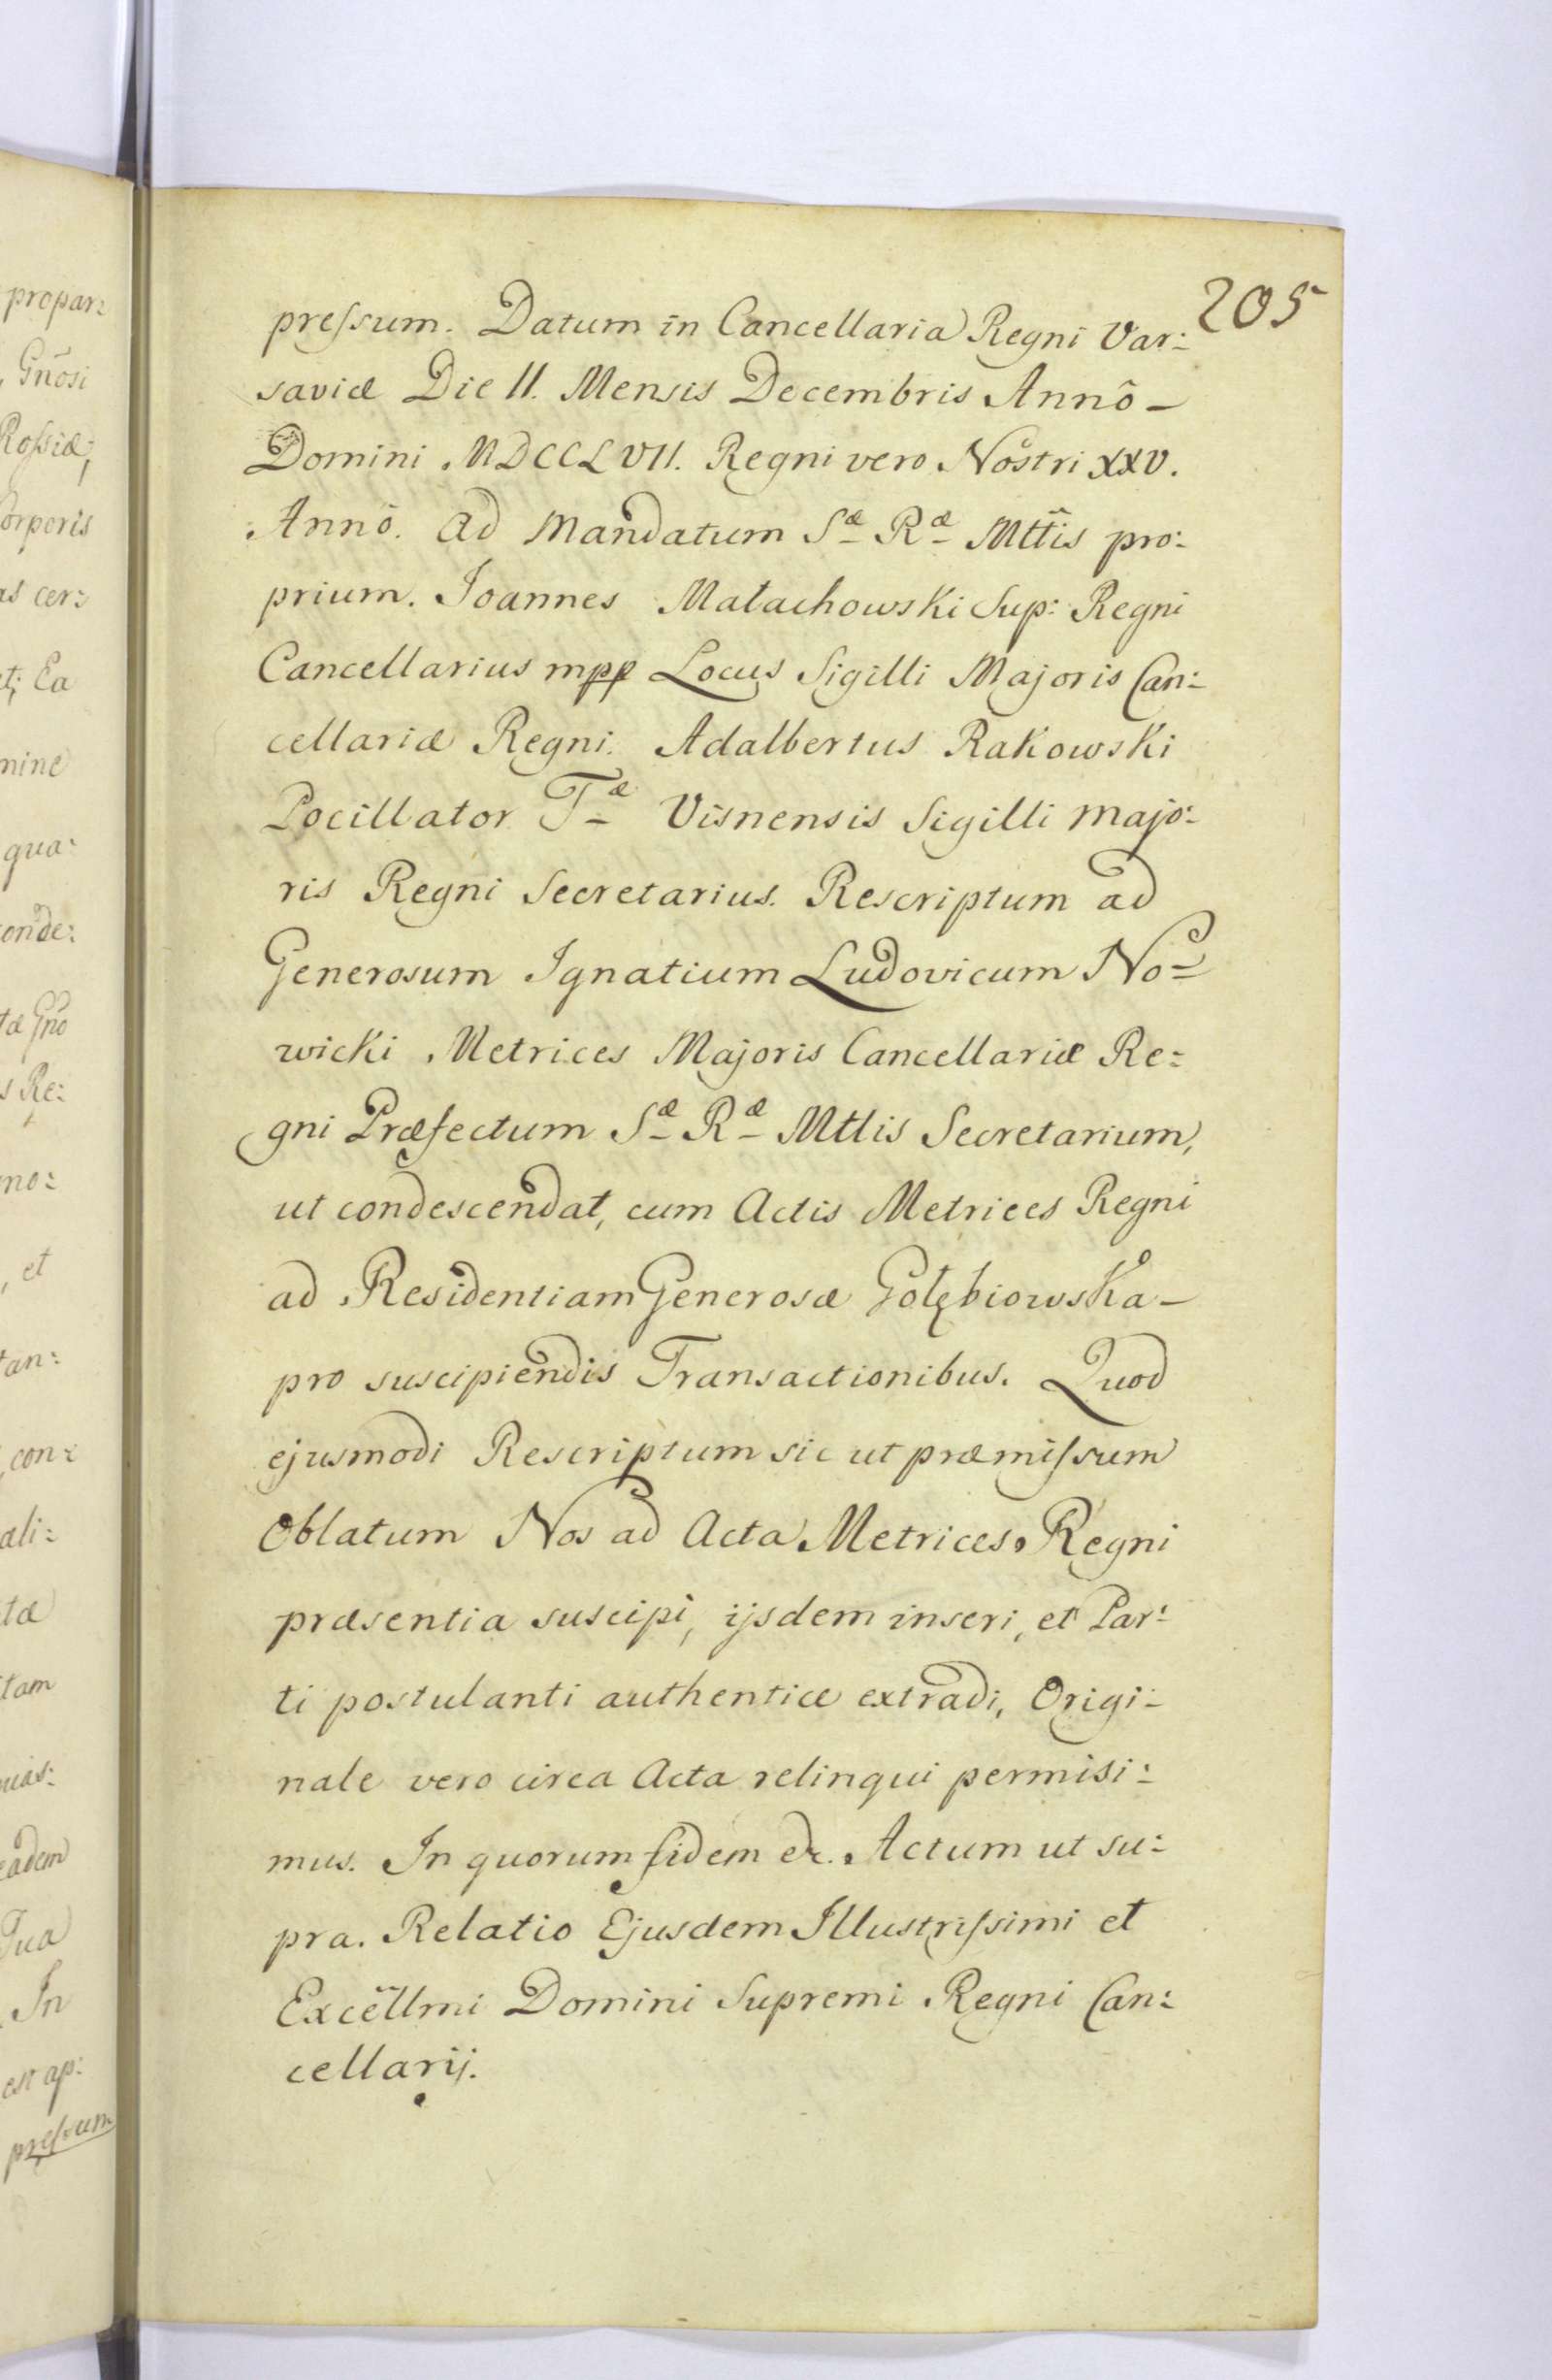 205
preſsum. Datum in Cancellaria Regni Var:
saviæ Die 11. Mensis Decembris Annô –
Domini MDCCLVII. Regni vero Nostri XXV.
Annô. ad Mandatum Sæ Ræ Mttis pro:
prium. Joannes Małachowski Sup: Regni
Cancellarius mpp Locus Sigilli Majoris Can:
cellariæ Regni. Adalbertus Rakowski
Pocillator Tæ Visnensis Sigilli majo:
ris Regni Secretarius. Rescriptum ad
Generosum Ignatium Ludovicum No=
wicki Metrices Majoris Cancellariæ Re:
gni Præfectum Sæ Ræ Mttis Secretarium,
ut condescendat, cum Actis Metrices Regni
ad Residentiam Generosæ Gołębiowska –
pro suscipiendis Transactionibus. Quod
ejusmodi Rescriptum sic ut præmiſsum
Oblatum Nos ad Acta Metrices Regni
præsentia suscipi, ijsdem inseri, et Par:
ti postulanti authentice extradi, Origi:
nale vero circa Acta relinqui permisi:
mus. In quorum fidem &c. Actum ut su:
pra. Relatio Ejusdem Illustriſsimi et
Excellmi Domini Supremi Regni Can:
cellarij.
propar:
Gñosi
Roſsiæ,
orporis
as cer:
Ea
mine
qua:
onde:
tæ Gño
s Re:
mo:
, et
tan:
con:
ali:
tæ
tam
uas:
eadem
Tua
In
est ap:
preſsum